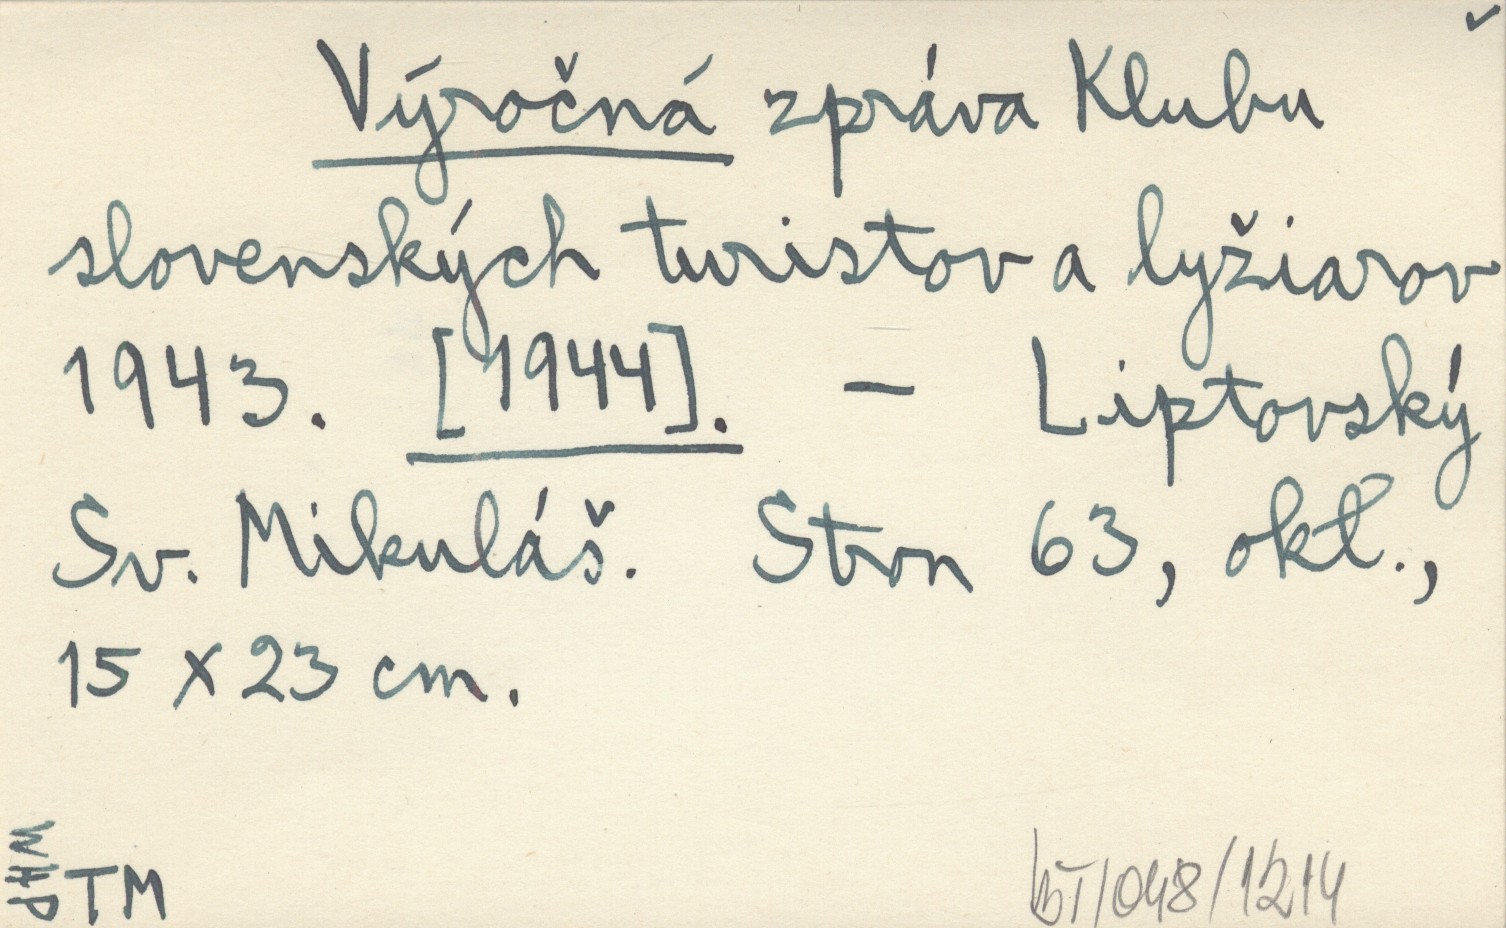 Výročná zpráva Klubu
slovenských turistov a lyžiarov
1943. [1944]. — Liptovský
Sv. Mikuláš. Stron 63, okł.,
15 x 23 cm.
WAP
TM
/048/1214